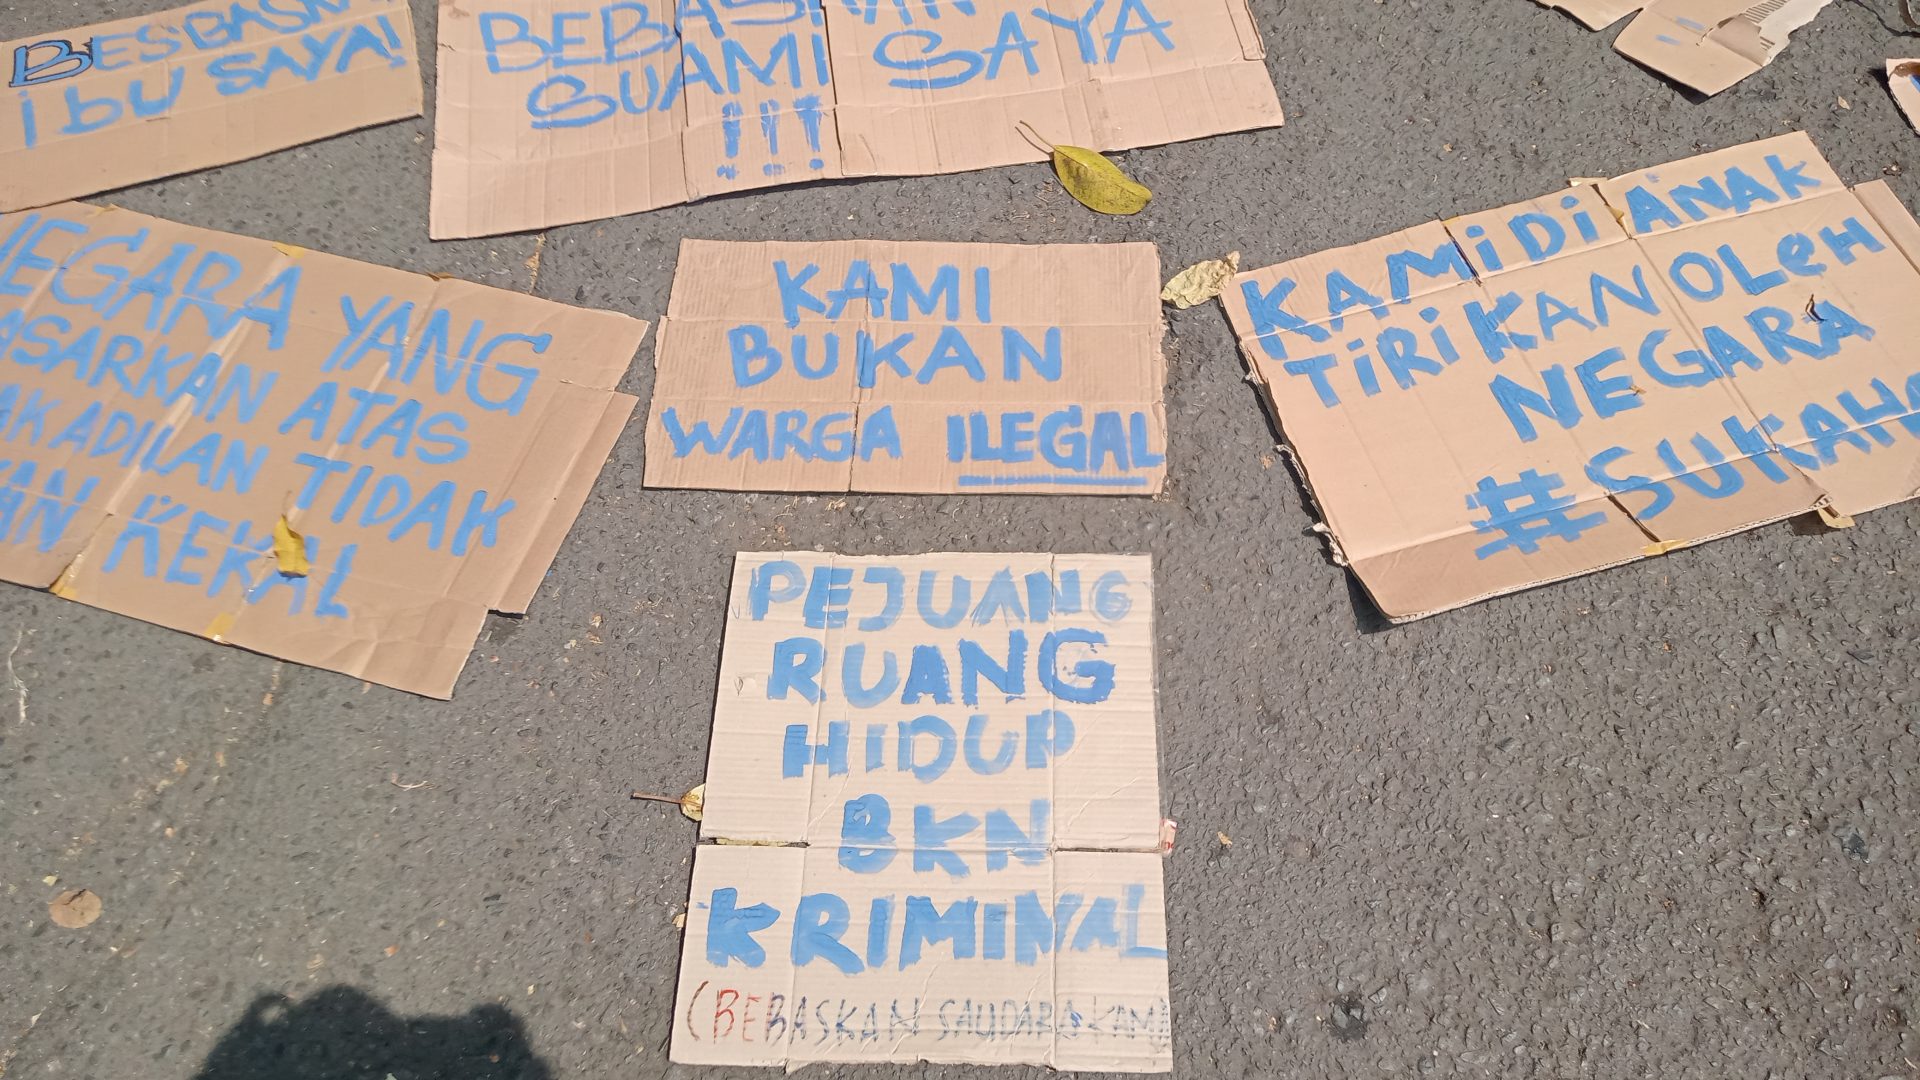 BESBASKAN
IBU SAYA!
BEBASKAN
SUAMI SAYA
!!!
NEGARA YANG
ASARKAN ATAS
AKADILAN TIDAK
AN KEKAL
KAMI
BUKAN
WARGA ILEGAL
KAMI DI ANAK
TIRIKAN OLEH
NEGARA
#SUKAHA
PEJUANG
RUANG
HIDUP
BKN
KRIMINAL
(BEBASKAN SAUDARA KAMI